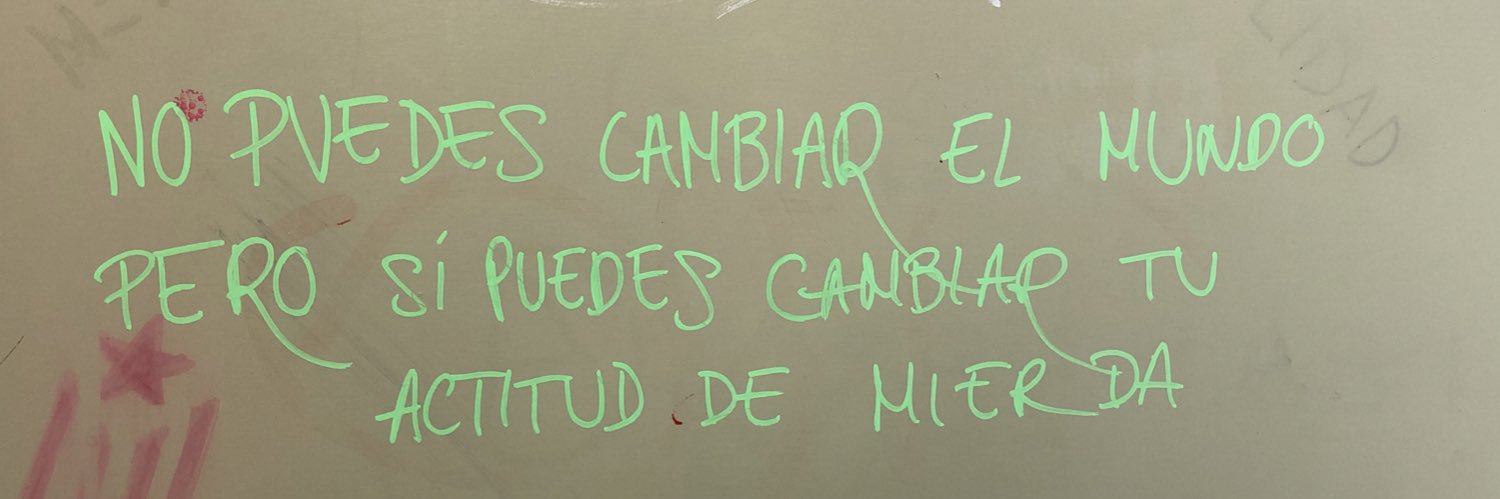 NO PUEDES CAMBIAR EL MUNDO
PERO SÍ PUEDES CAMBIAR TU
ACTITUD DE MIERDA